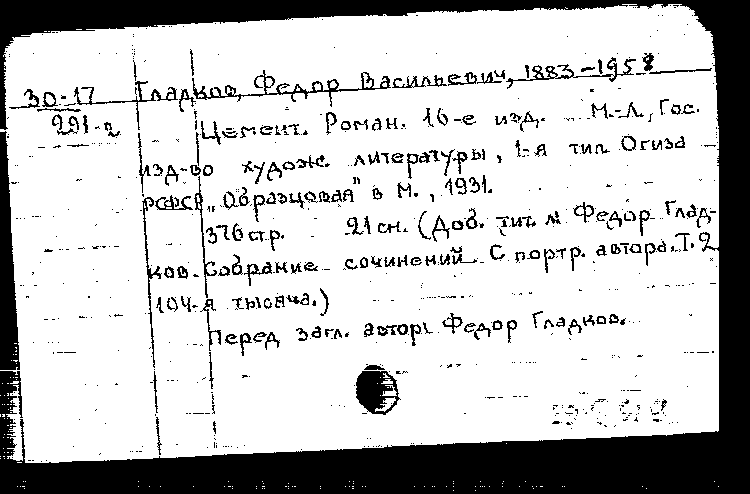 30-17
291-2
Гладков, Федор Васильевич, 1883-1958
Цемент. Роман. 16-е изд. М.-Л., Гос.
изд-во худож. литературы, 1-я тип. Огиза
РСФСР „Образцовая" в М., 1931.
376 стр. 21 см. (Доб. тит. л. Федор Глад-
ков. Собрание сочинений. С портр. автора. Т. 2
104-я тысяча.)
Перед загл. автор: Федор Гладков.